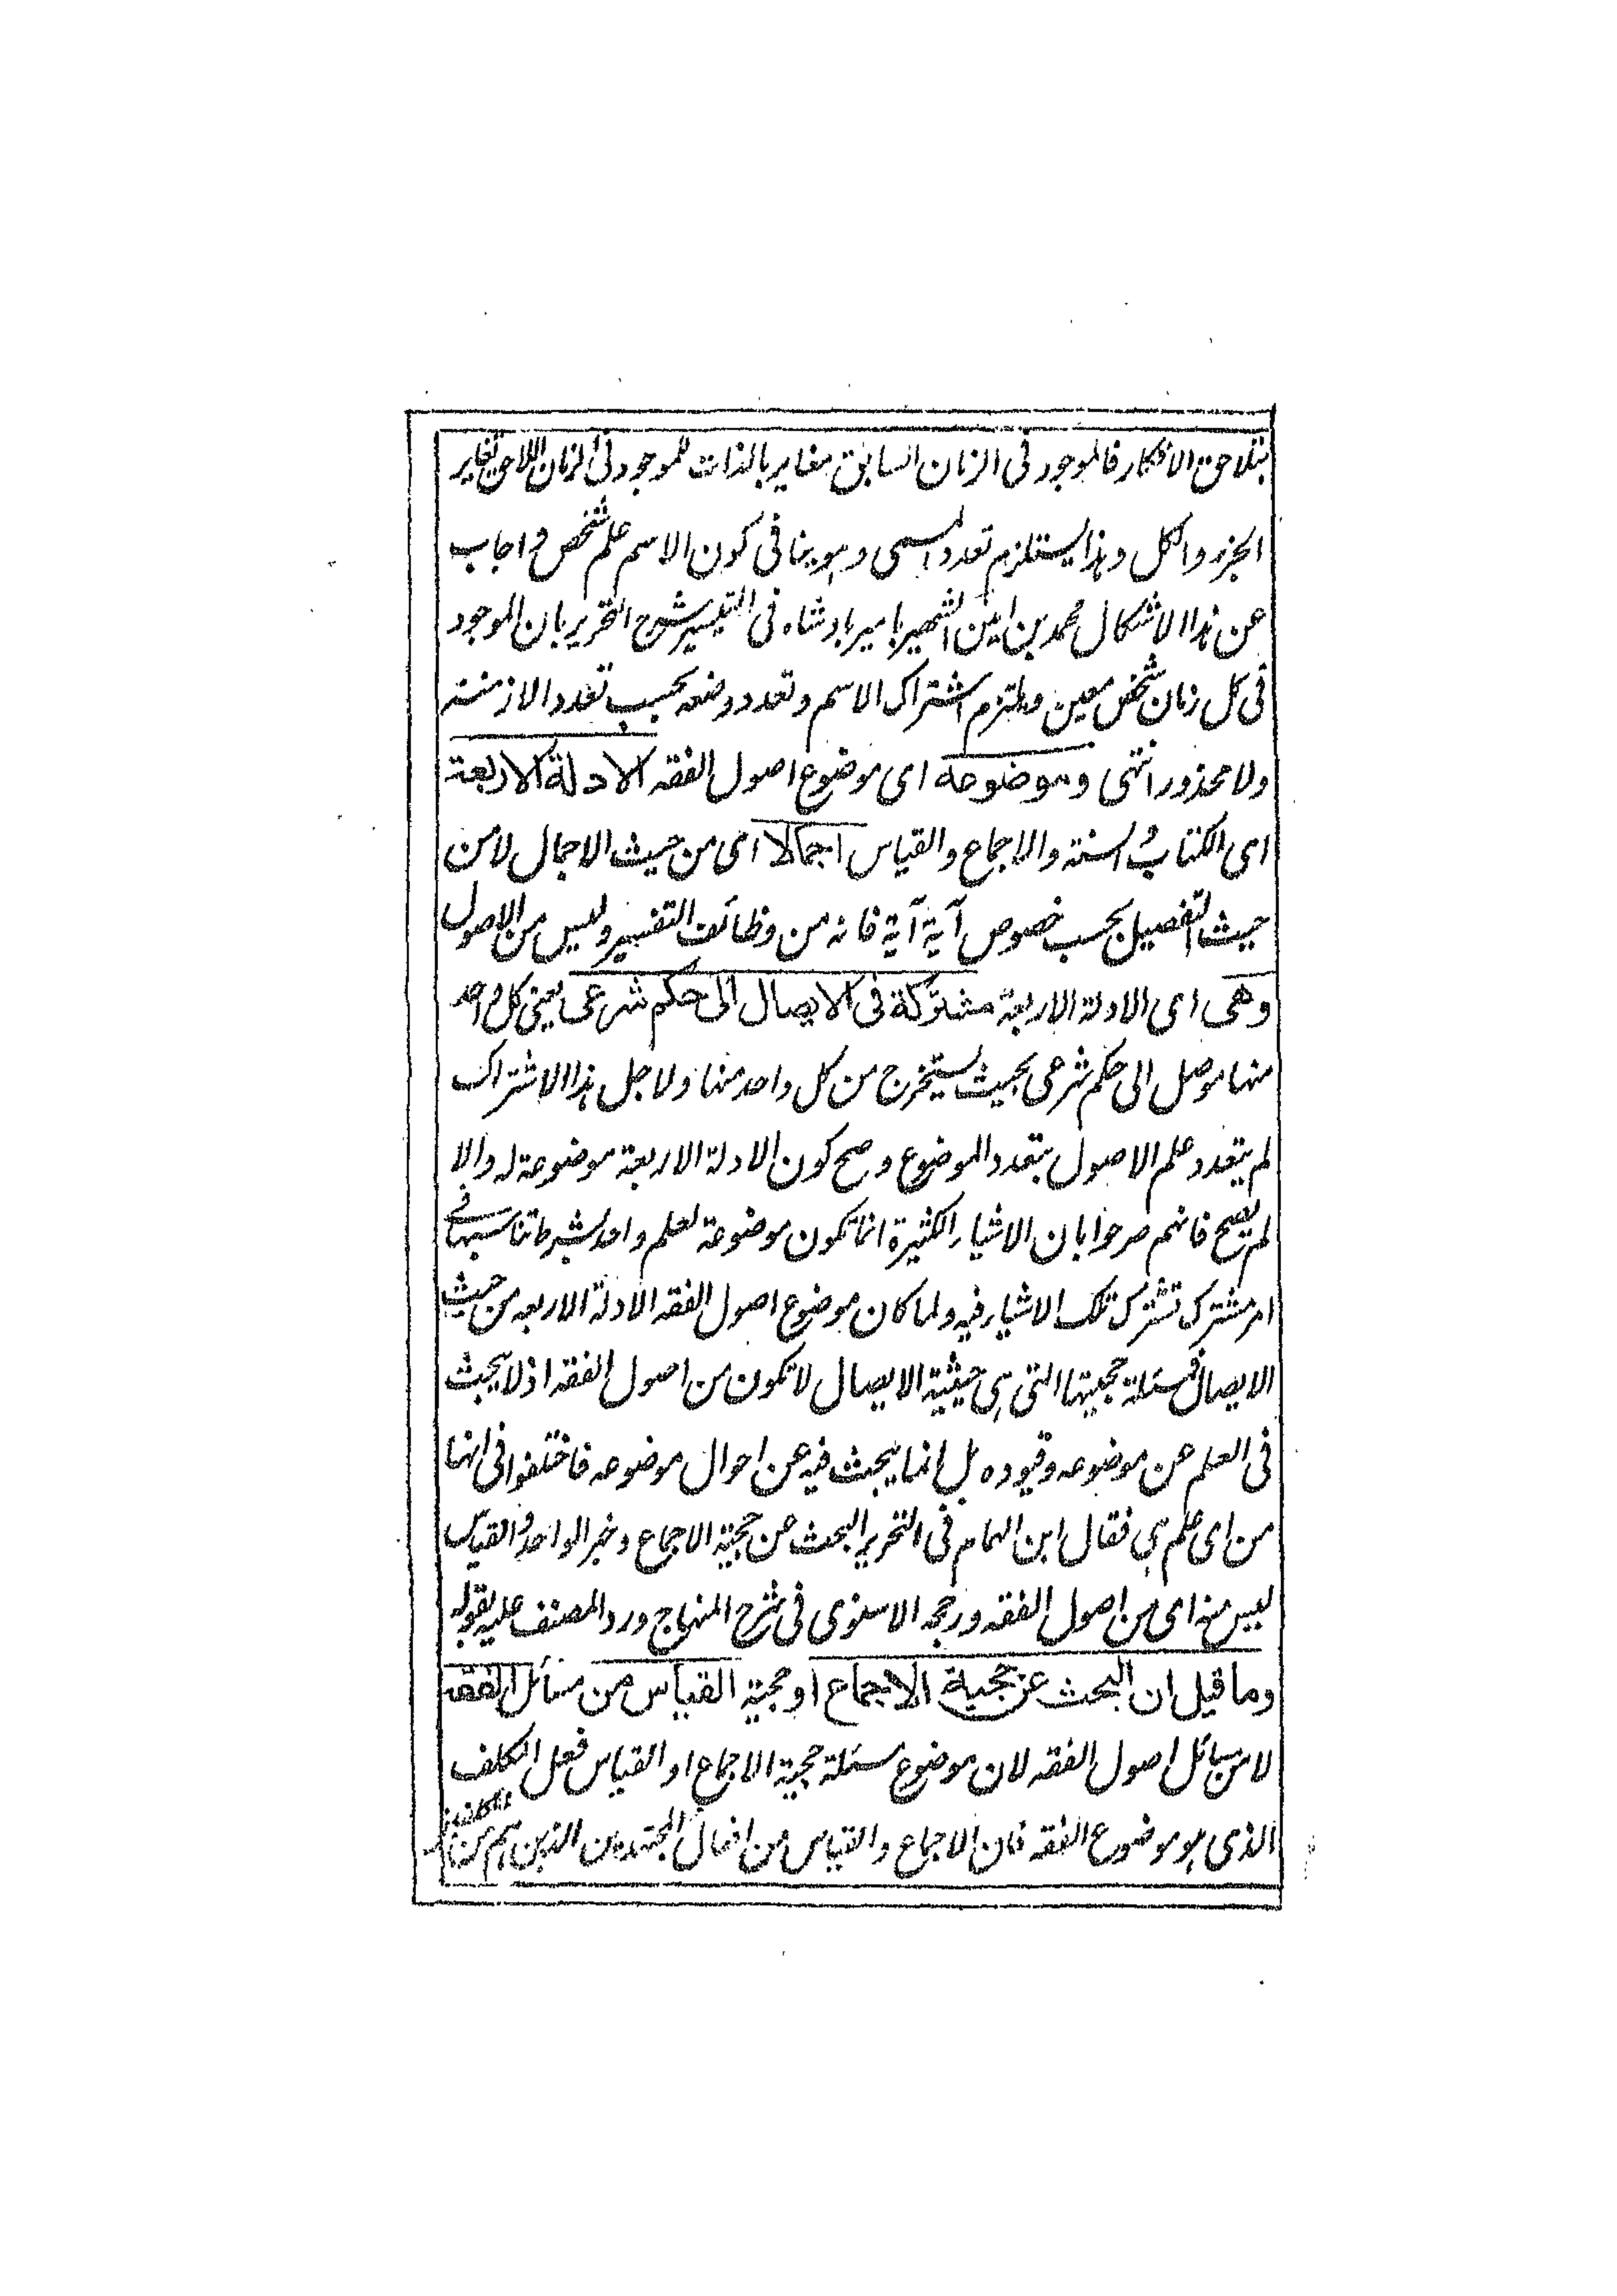 بتلاحق الافكار فالموجود فى الزمان السابق مغاير بالذات للموجود فى الزمان اللاحق تغاير
الجزء والكل وهذا يستلزم تعدد المسمى وهو ينافى كون الاسم علم شخص واجاب
عن هذا الاشكال محمد بن امين الشهير بامير بادشاه فى التيسير شرح التحرير بان الموجود
فى كل زمان شخص معين ويلتزم اشتراك الاسم وتعدد وضعه بحسب تعدد الازمنة
ولا محذور انتهى وموضوعه اى موضوع اصول الفقه الادلة الاربعة
اى الكتاب والسنة والاجماع والقياس اجمالا اى من حيث الاجمال لا من
حيث التفصيل بحسب خصوص آية آية فانه من وظائف التفسير وليس من الاصول
وهى اى الادلة الاربعة مشتركة فى الايصال الى حكم شرعى يعنى كل واحد
منها موصل الى حكم شرعى بحيث يستخرج من كل واحد منها ولاجل هذا الاشتراك
لم يتعدد علم الاصول بتعدد الموضوع وصح كون الادلة الاربعة موضوعة له والا
لم يصح فانهم صرحوا بان الاشياء الكثيرة انما تكون موضوعة لعلم واحد بشرط تناسبها فى
امر مشترك تشترك تلك الاشياء فيه ولما كان موضوع اصول الفقه الادلة الاربعه من حيث
الايصال فمسئلة حجيتها التى هى حيثية الايصال لا تكون من اصول الفقه اذ لا يبحث
فى العلم عن موضوعه وقيوده بل انما يبحث فيه عن احوال موضوعه فاختلفوا فى انها
من اى علم هى فقال ابن الهمام فى التحرير البحث عن حجية الاجماع وخبر الواحد والقياس
ليس منه اى من اصول الفقه ورجحه الاسنوى فى شرح المنهاج ورد المصنف عليه بقوله
وما قيل ان البحث عن حجية الاجماع او حجية القياس من مسائل الفقه
لا من مسائل اصول الفقه لان موضوع مسئلة حجية الاجماع او القياس فعل المكلف
الذى هو موضوع الفقه فان الاجماع والقياس من افعال المجتهدين الذين هم من